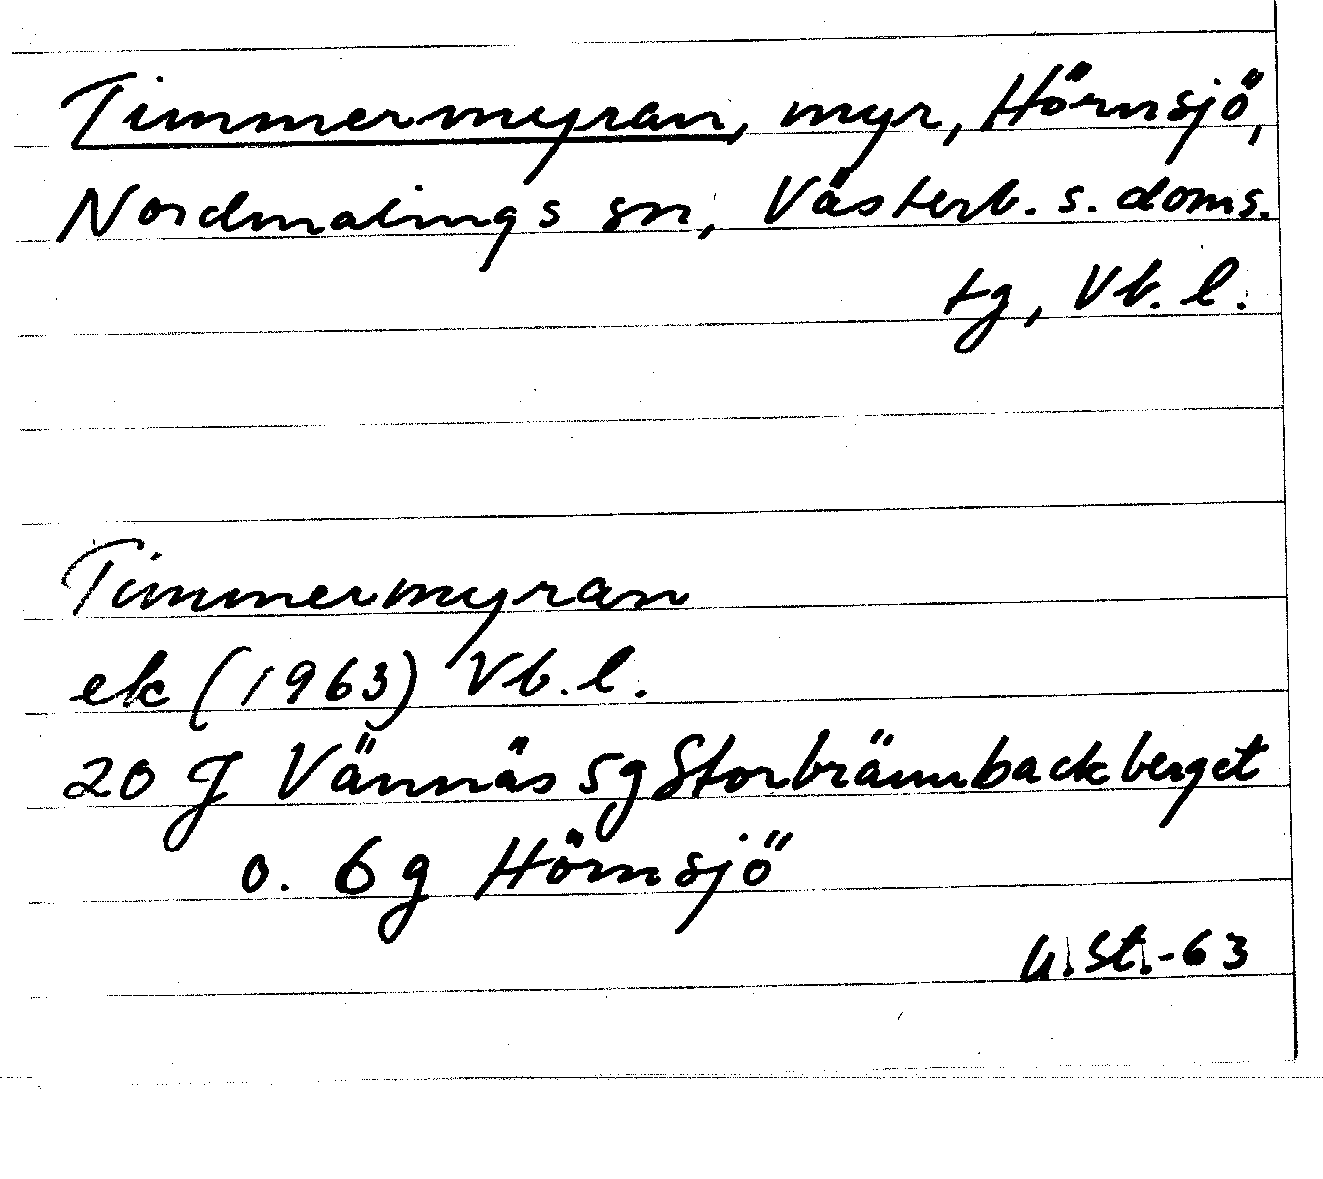 Timmermyran, myr, Hörnsjö,
Nordmalings sn, Västerb. s. doms.
tg, Vb. l.
Timmermyran
ek (1963) Vb. l.
20 J Vännäs 5g Storbrännbackberget
o. 6 g Hörnsjö
U. St. -63